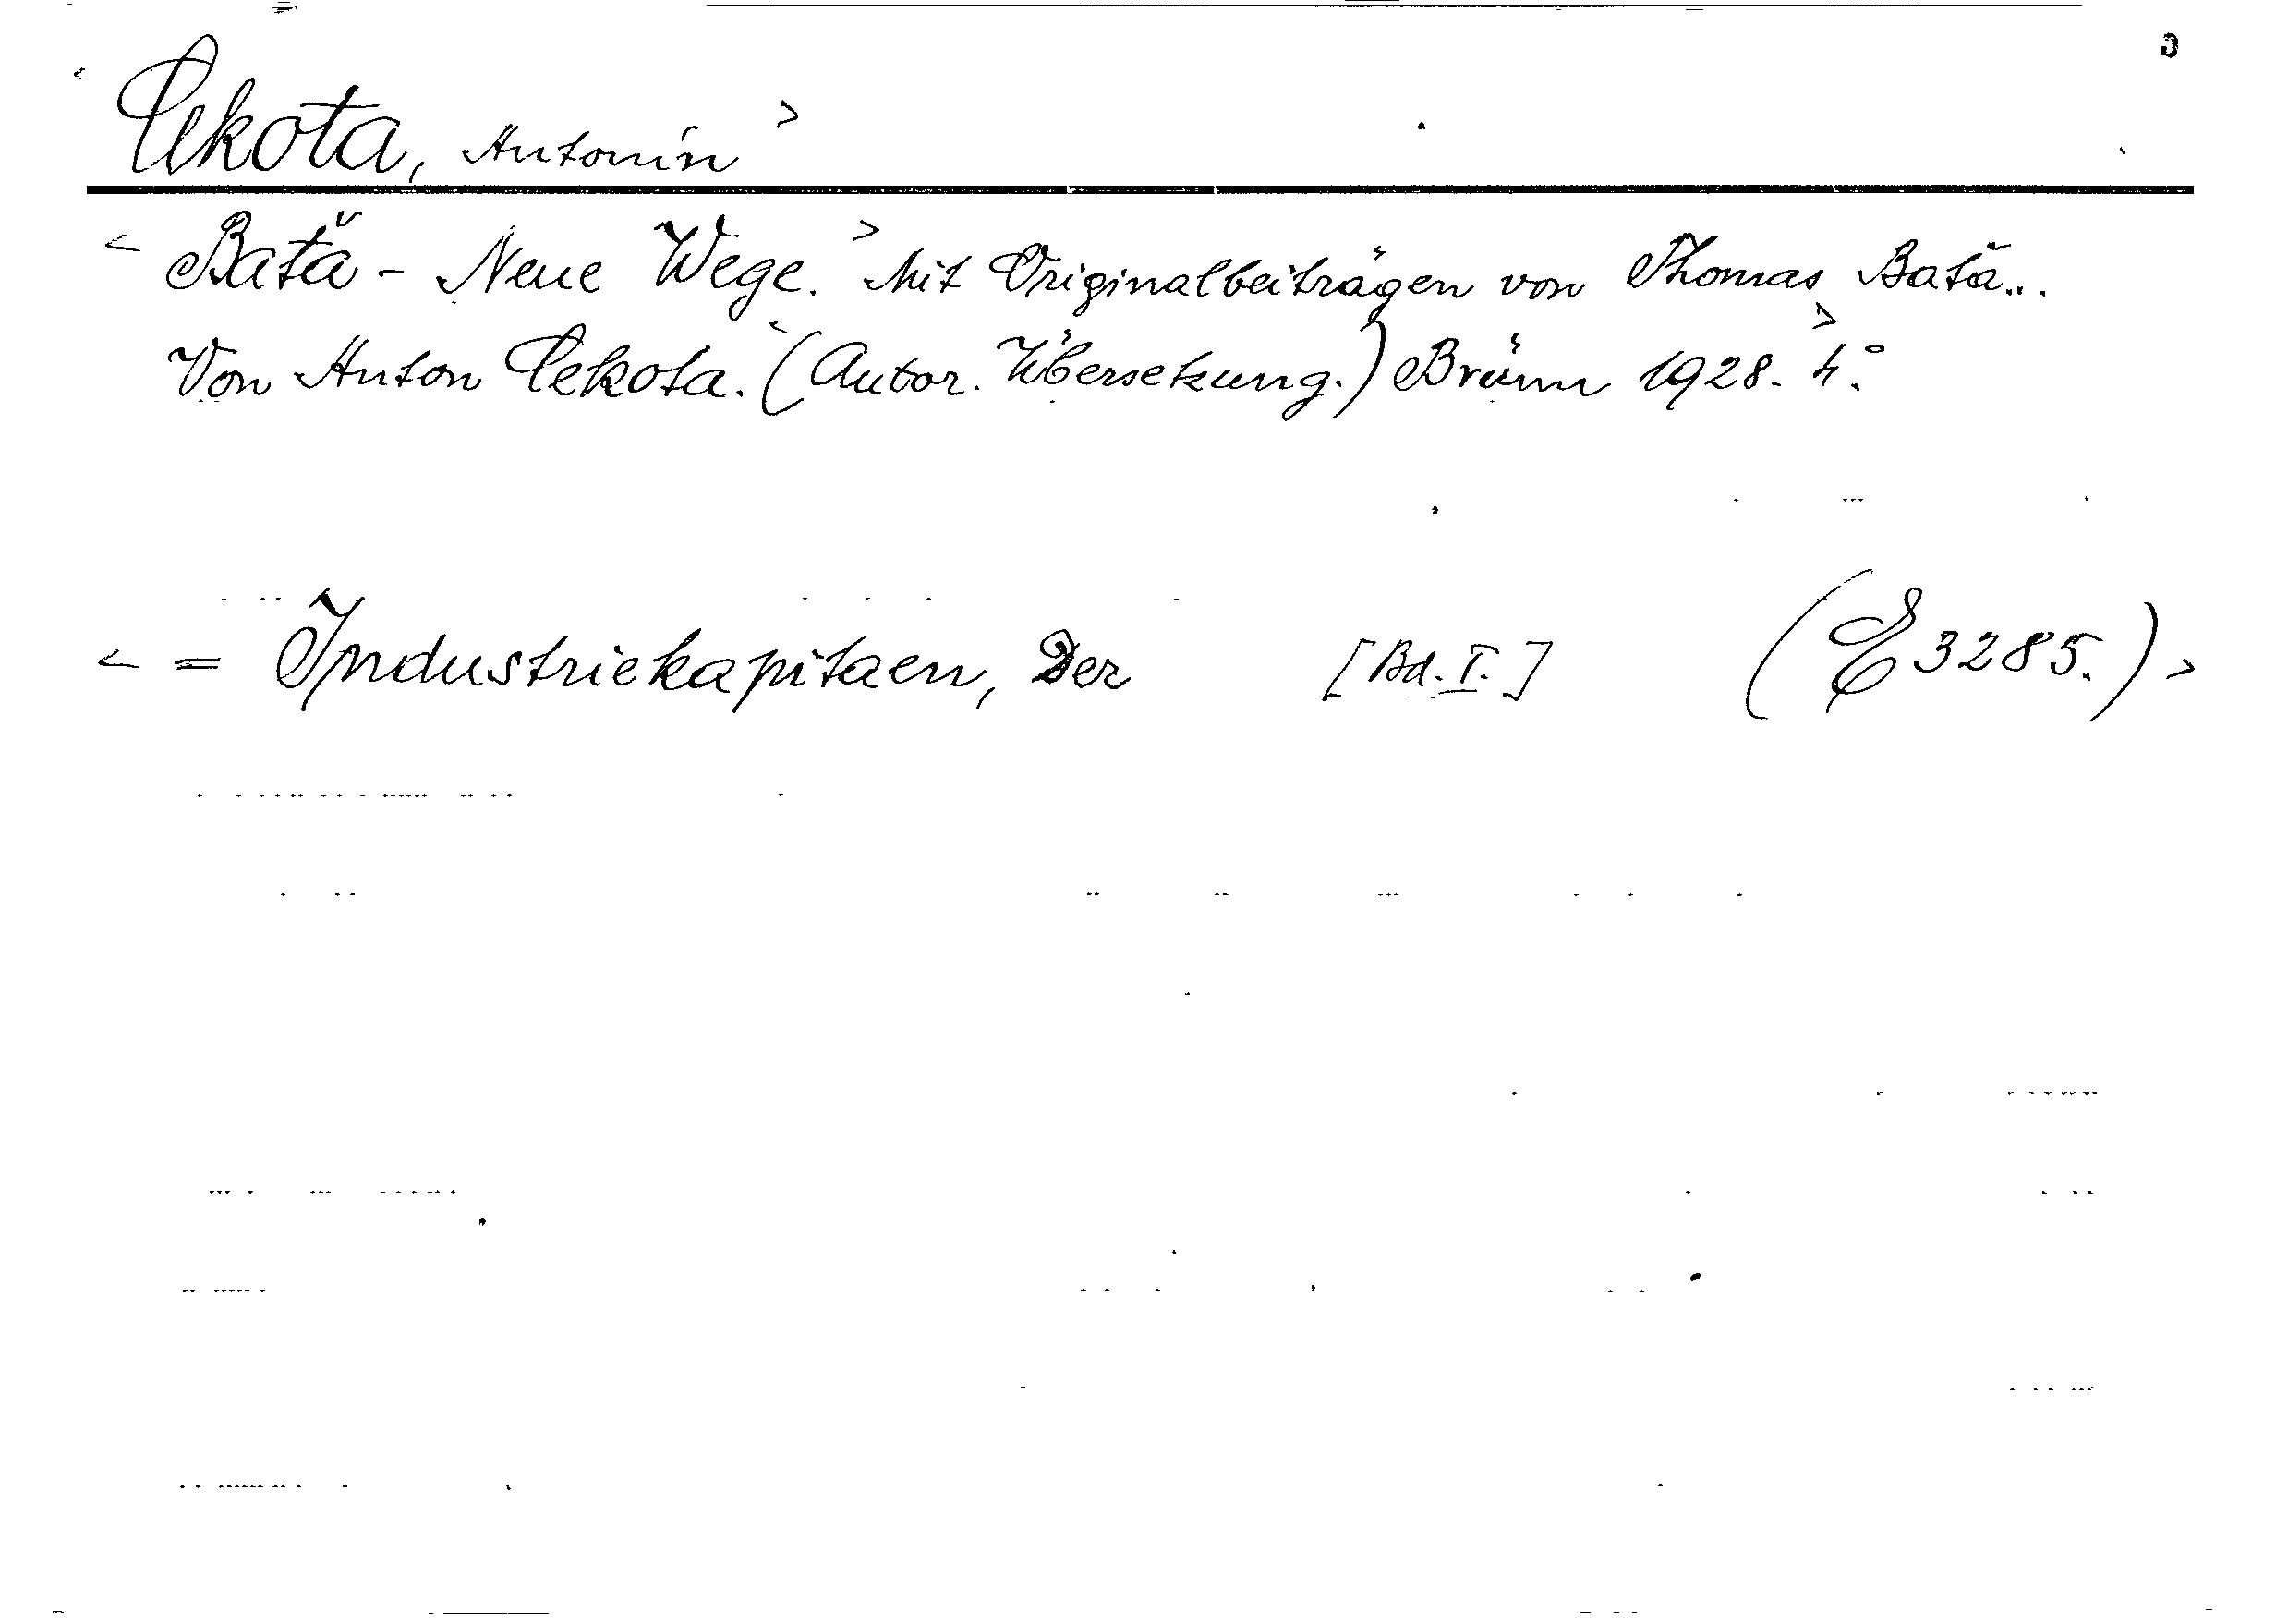 < Cekota, Antonín >
< Baťa - Neue Wege. > Mit Originalbeiträgen von Thomas Baťa...
Von Anton Cekota. < (Autor. Übersetzung.) Brünn 1928. > 4°.
< = Industriekapitaen, Der [Bd. I.] (E 3285.) >